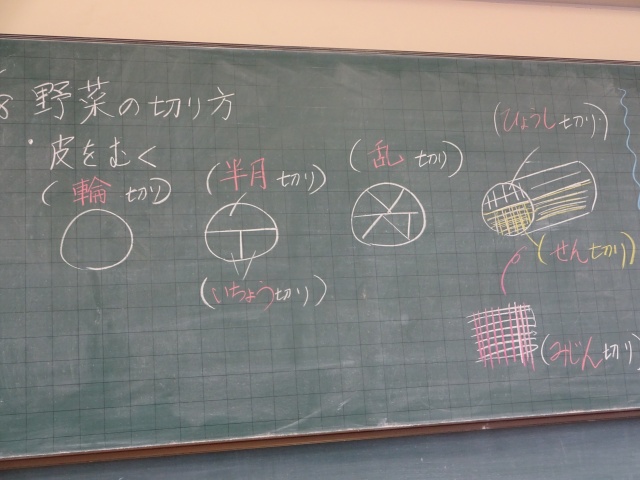 野菜の切り方
・皮をむく
(輪切り)
(半月切り)
(いちょう切り)
(乱切り)
(ひょうし切り)
(せん切り)
(みじん切り)